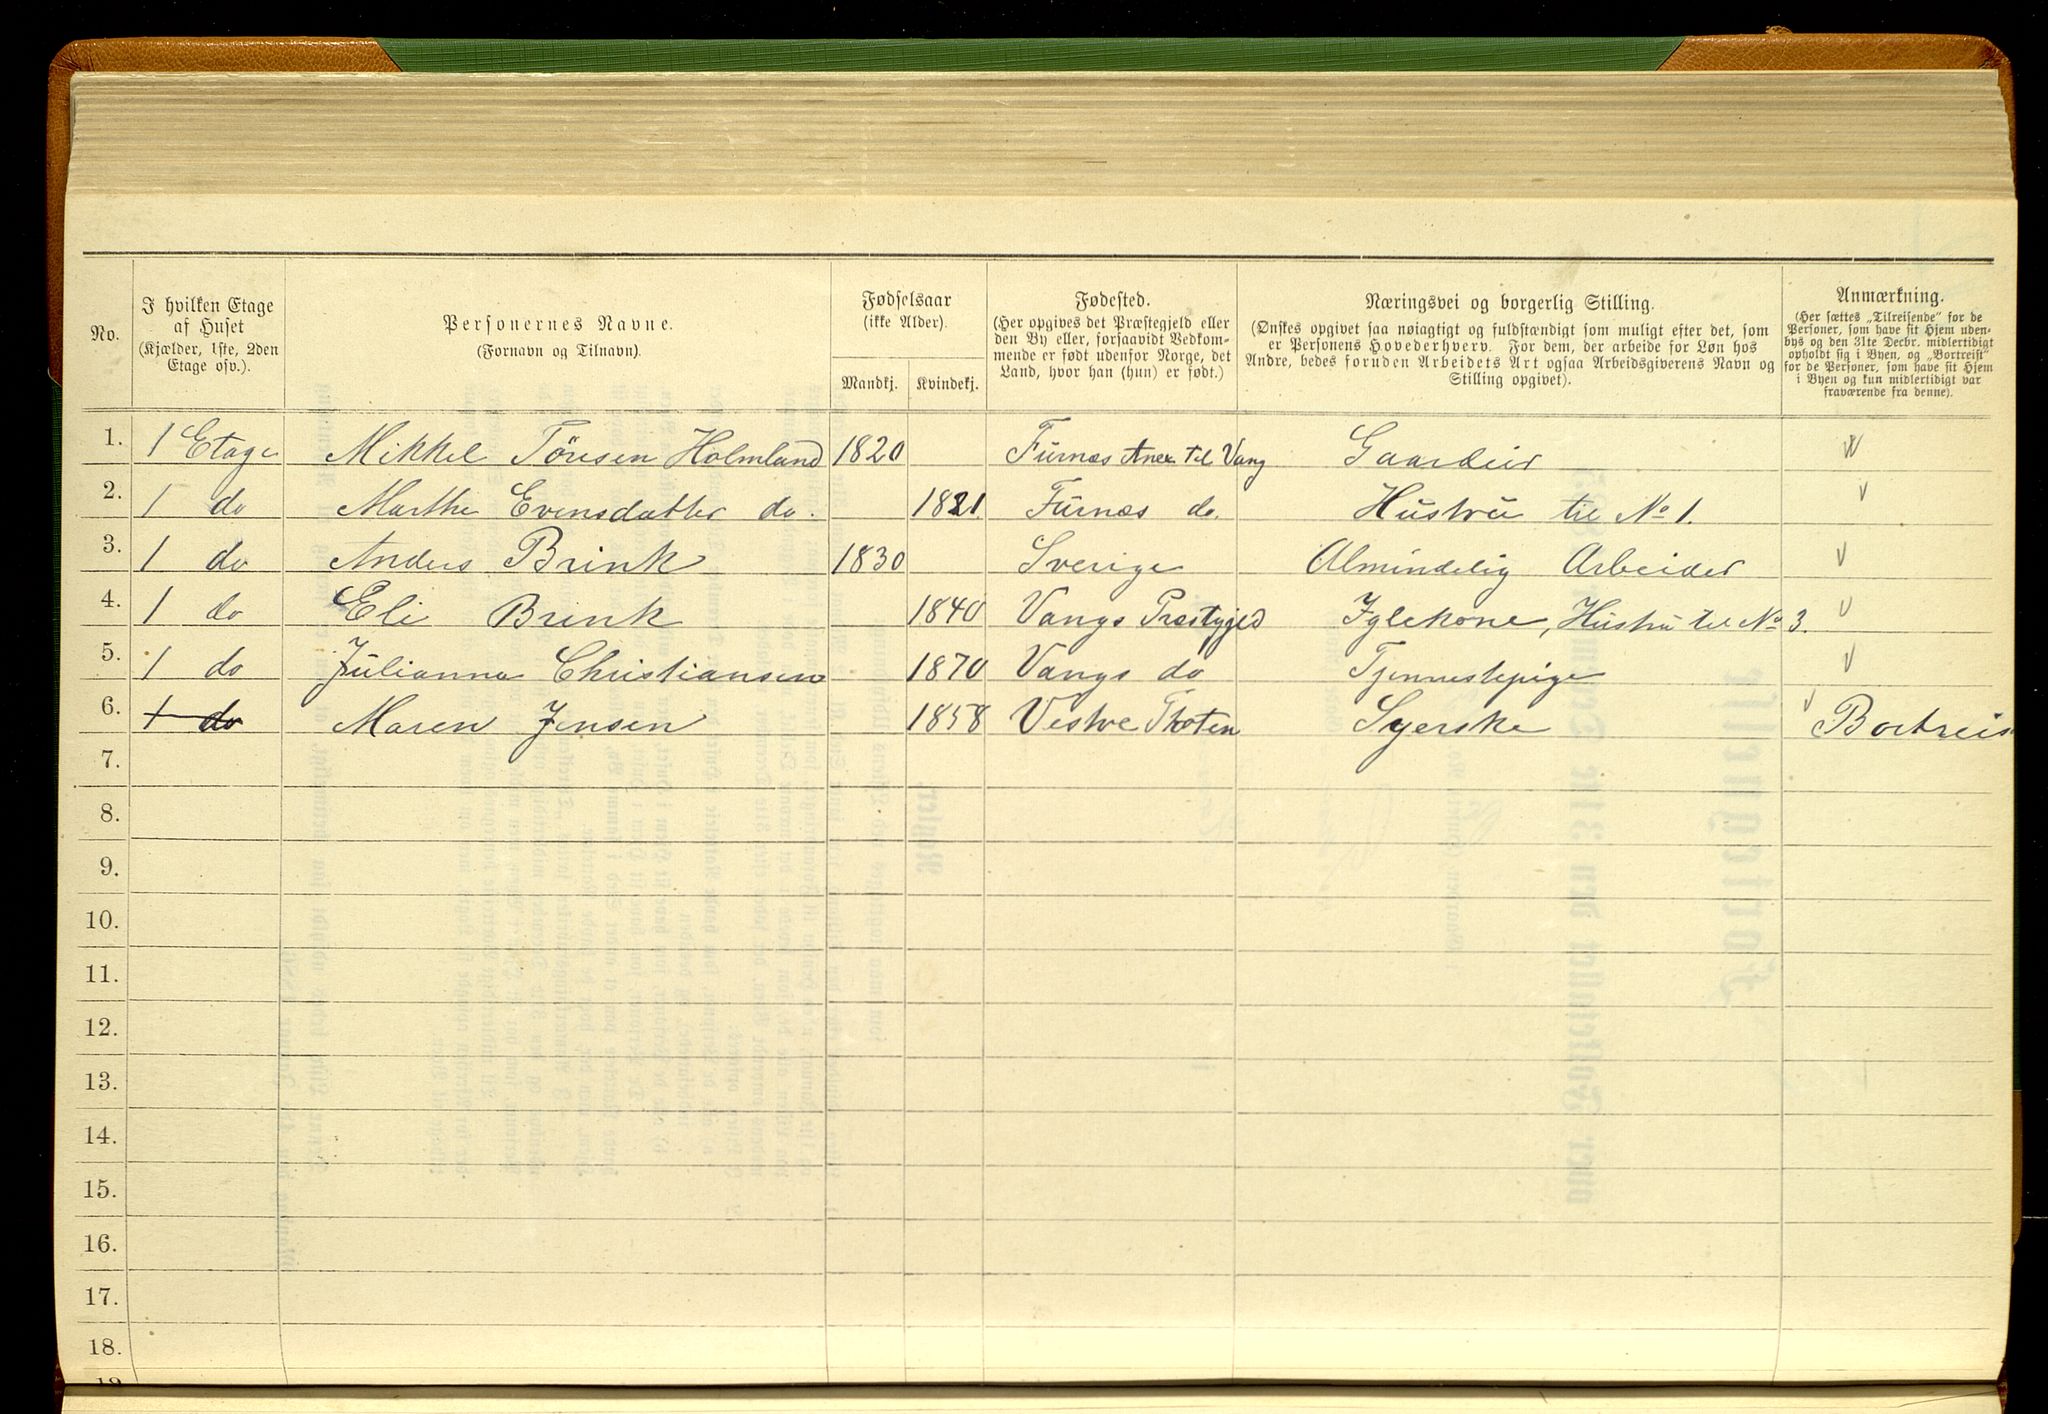 No.
I hvilken Etage
af Huset
(Kjælder, 1ste, 2den
Etage osv.).
Personernes Navne.
(Fornavn og Tilnavn).
Fødselsaar
(ikke Alder).
Mandkj. Kvindekj.
Fødested.
(Her opgives det Præstegjeld eller
den By eller, forsaavidt Vedkom-
mende er født udenfor Norge, det
Land, hvor han (hun) er født.)
Næringsvei og borgerlig Stilling.
(Ønskes opgivet saa nøiagtigt og fuldstændigt som muligt efter det, som
er Personens Hovederhverv. For dem, der arbeide for Løn hos
Andre, bedes foruden Arbeidets Art ogsaa Arbeidsgiverens Navn og
Stilling opgivet).
Anmærkning.
(Her sættes „Tilreisende" for de
Personer, som have sit Hjem uden-
bys og den 31te Decbr. midlertidigt
opholdt sig i Byen, og „Bortreist"
for de Personer, som have sit Hjem
i Byen og kun midlertidigt var
fraværende fra denne).
1. 1 Etage Mikkel Tönsen Holmland 1820 Furnæs Anex til Vang Gaardeier
2. 1 do Marthe Evensdatter do. 1821. Furnæs do. Hustru til No 1.
3. 1 do Anders Brink 1830 Sverige Almindelig Arbeider
4. 1 do Eli Brink 1840 Vangs Præstgjed Iglekone, Hustru til No 3.
5. 1 do Julianna Christiansen 1870 Vangs do Tjennestepige
6. 1 do Maren Jensen 1858 Vestre Thoten Syerske Bortreis
7.
8.
9.
10.
11.
12.
13.
14.
15.
16.
17.
18.